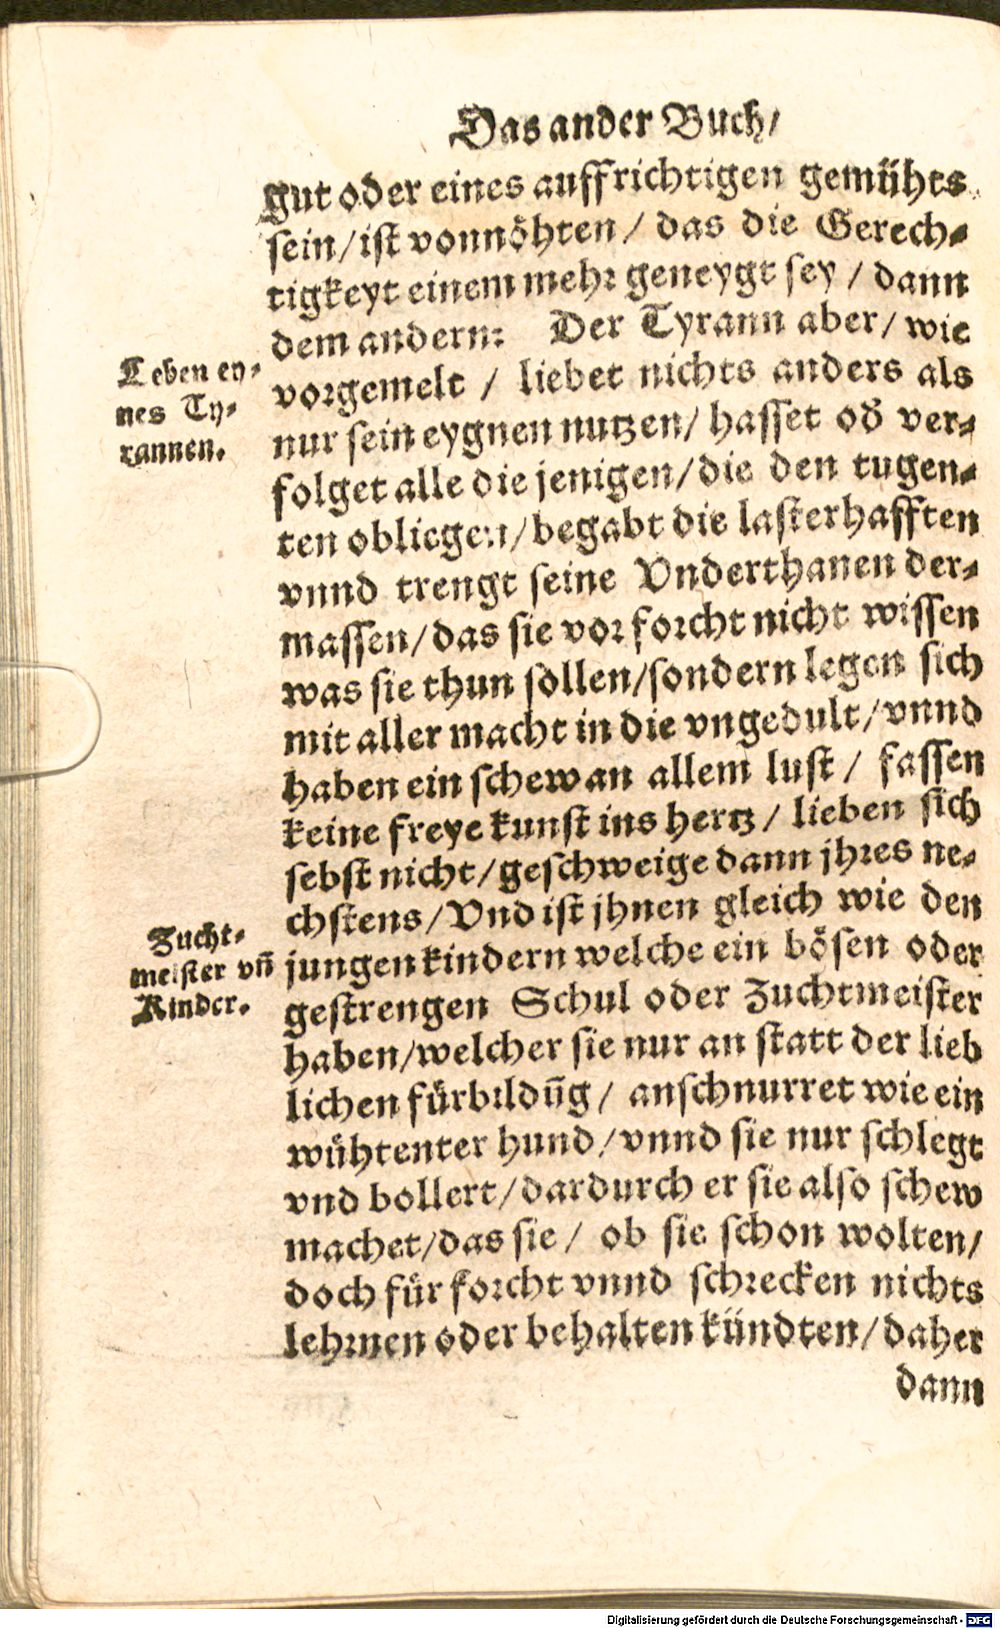 Das ander Buch/
gut oder eines auffrichtigen gemühts
sein/ist vonnöhten/ das die Gerech⸗
tigkeyt einem mehr geneygt sey / dann
dem andern: Der Tyrann aber/ wie
Leben ey⸗
nes Ty⸗
rannen.
vorgemelt / liebet nichts anders als
nur sein eygnen nutzen/ hasset od̃ ver⸗
folget alle die jenigen/die den tugen⸗
ten obliegen/begabt die lasterhafften
vnnd trengt seine Vnderthanen der⸗
massen/das sie vor forcht nicht wissen
was sie thun sollen/sondern legen sich
mit aller macht in die vngedult/vnnd
haben ein schew an allem lust / fassen
keine freye kunst ins hertz / lieben sich
sebst nicht/geschweige dann jhres ne⸗
chstens/Vnd ist jhnen gleich wie den
Zucht⸗
meister vñ
Kinder.
jungen kindern welche ein bösen oder
gestrengen Schul oder Zuchtmeister
haben/welcher sie nur an statt der lieb
lichen fürbildũg/ anschnurret wie ein
wühtenter hund/vnnd sie nur schlegt
vnd bollert/dardurch er sie also schew
machet/das sie / ob sie schon wolten/
doch für forcht vnnd schrecken nichts
lehrnen oder behalten kündten/daher
dann
Digitalisierung gefördert durch die Deutsche Forschungsgemeinschaft - DFG